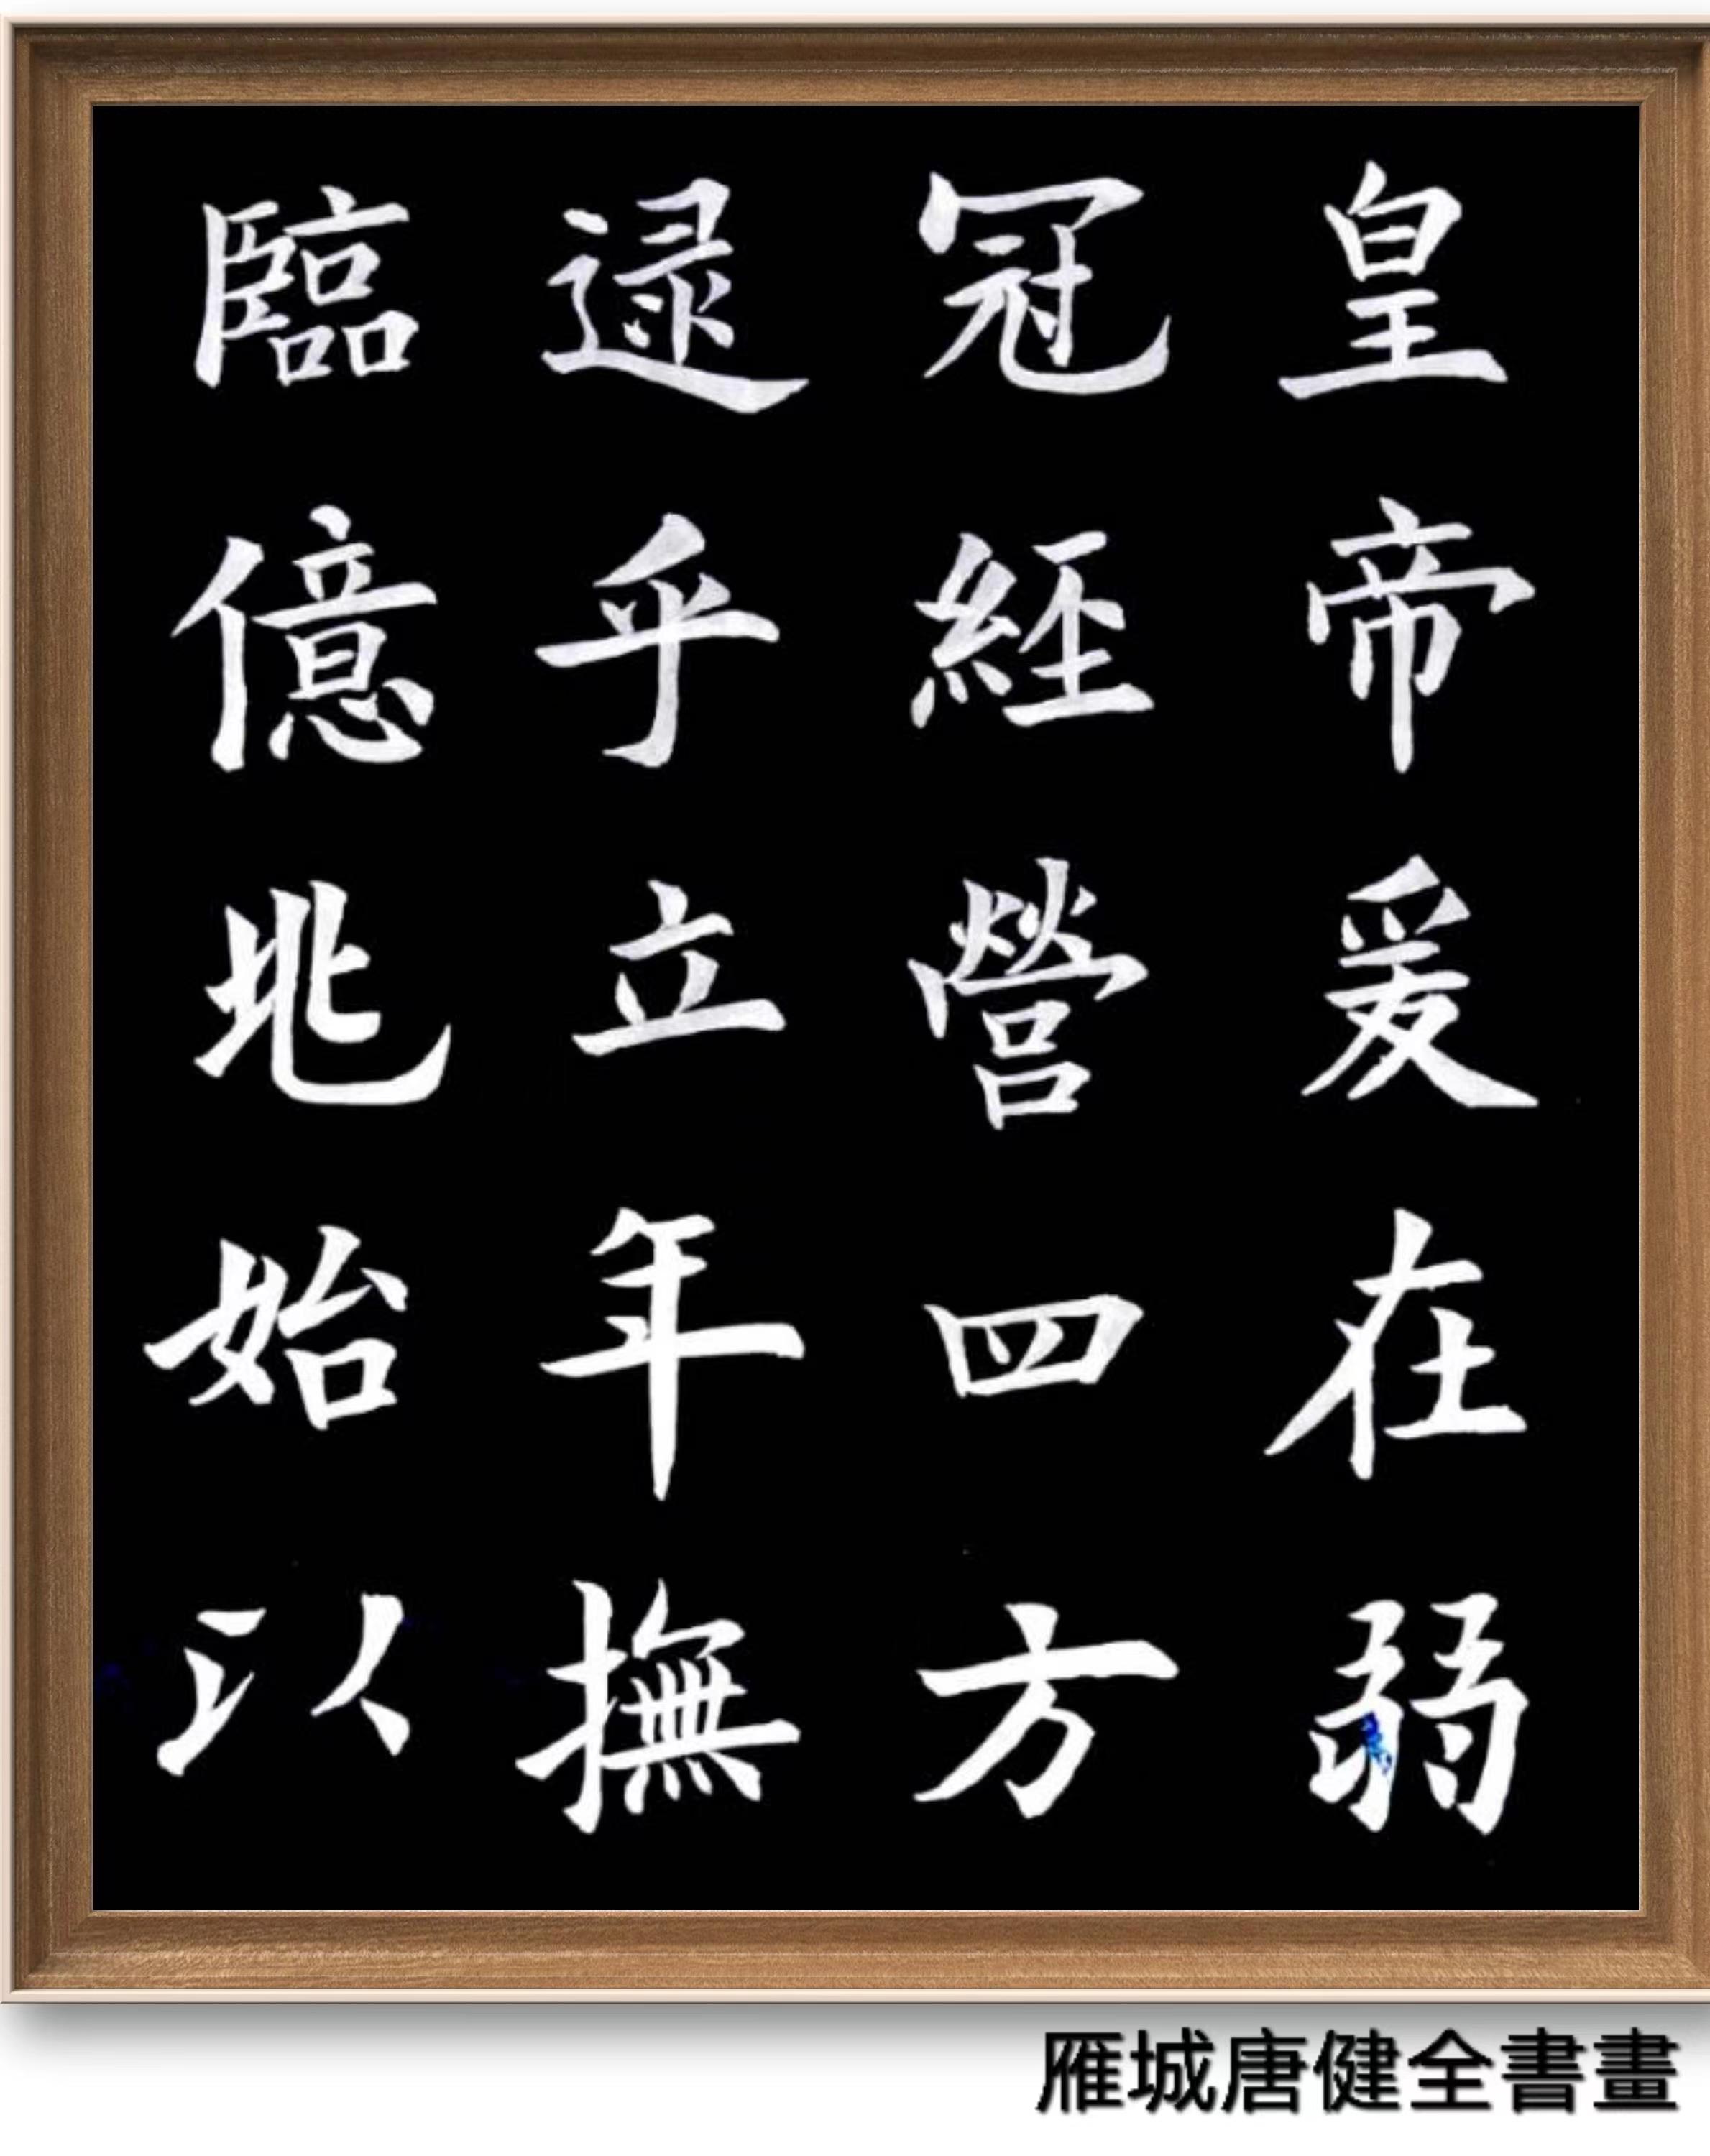 皇帝爰在弱
冠經營四方
逯乎立年撫
臨億兆始以
雁城唐健全書畫